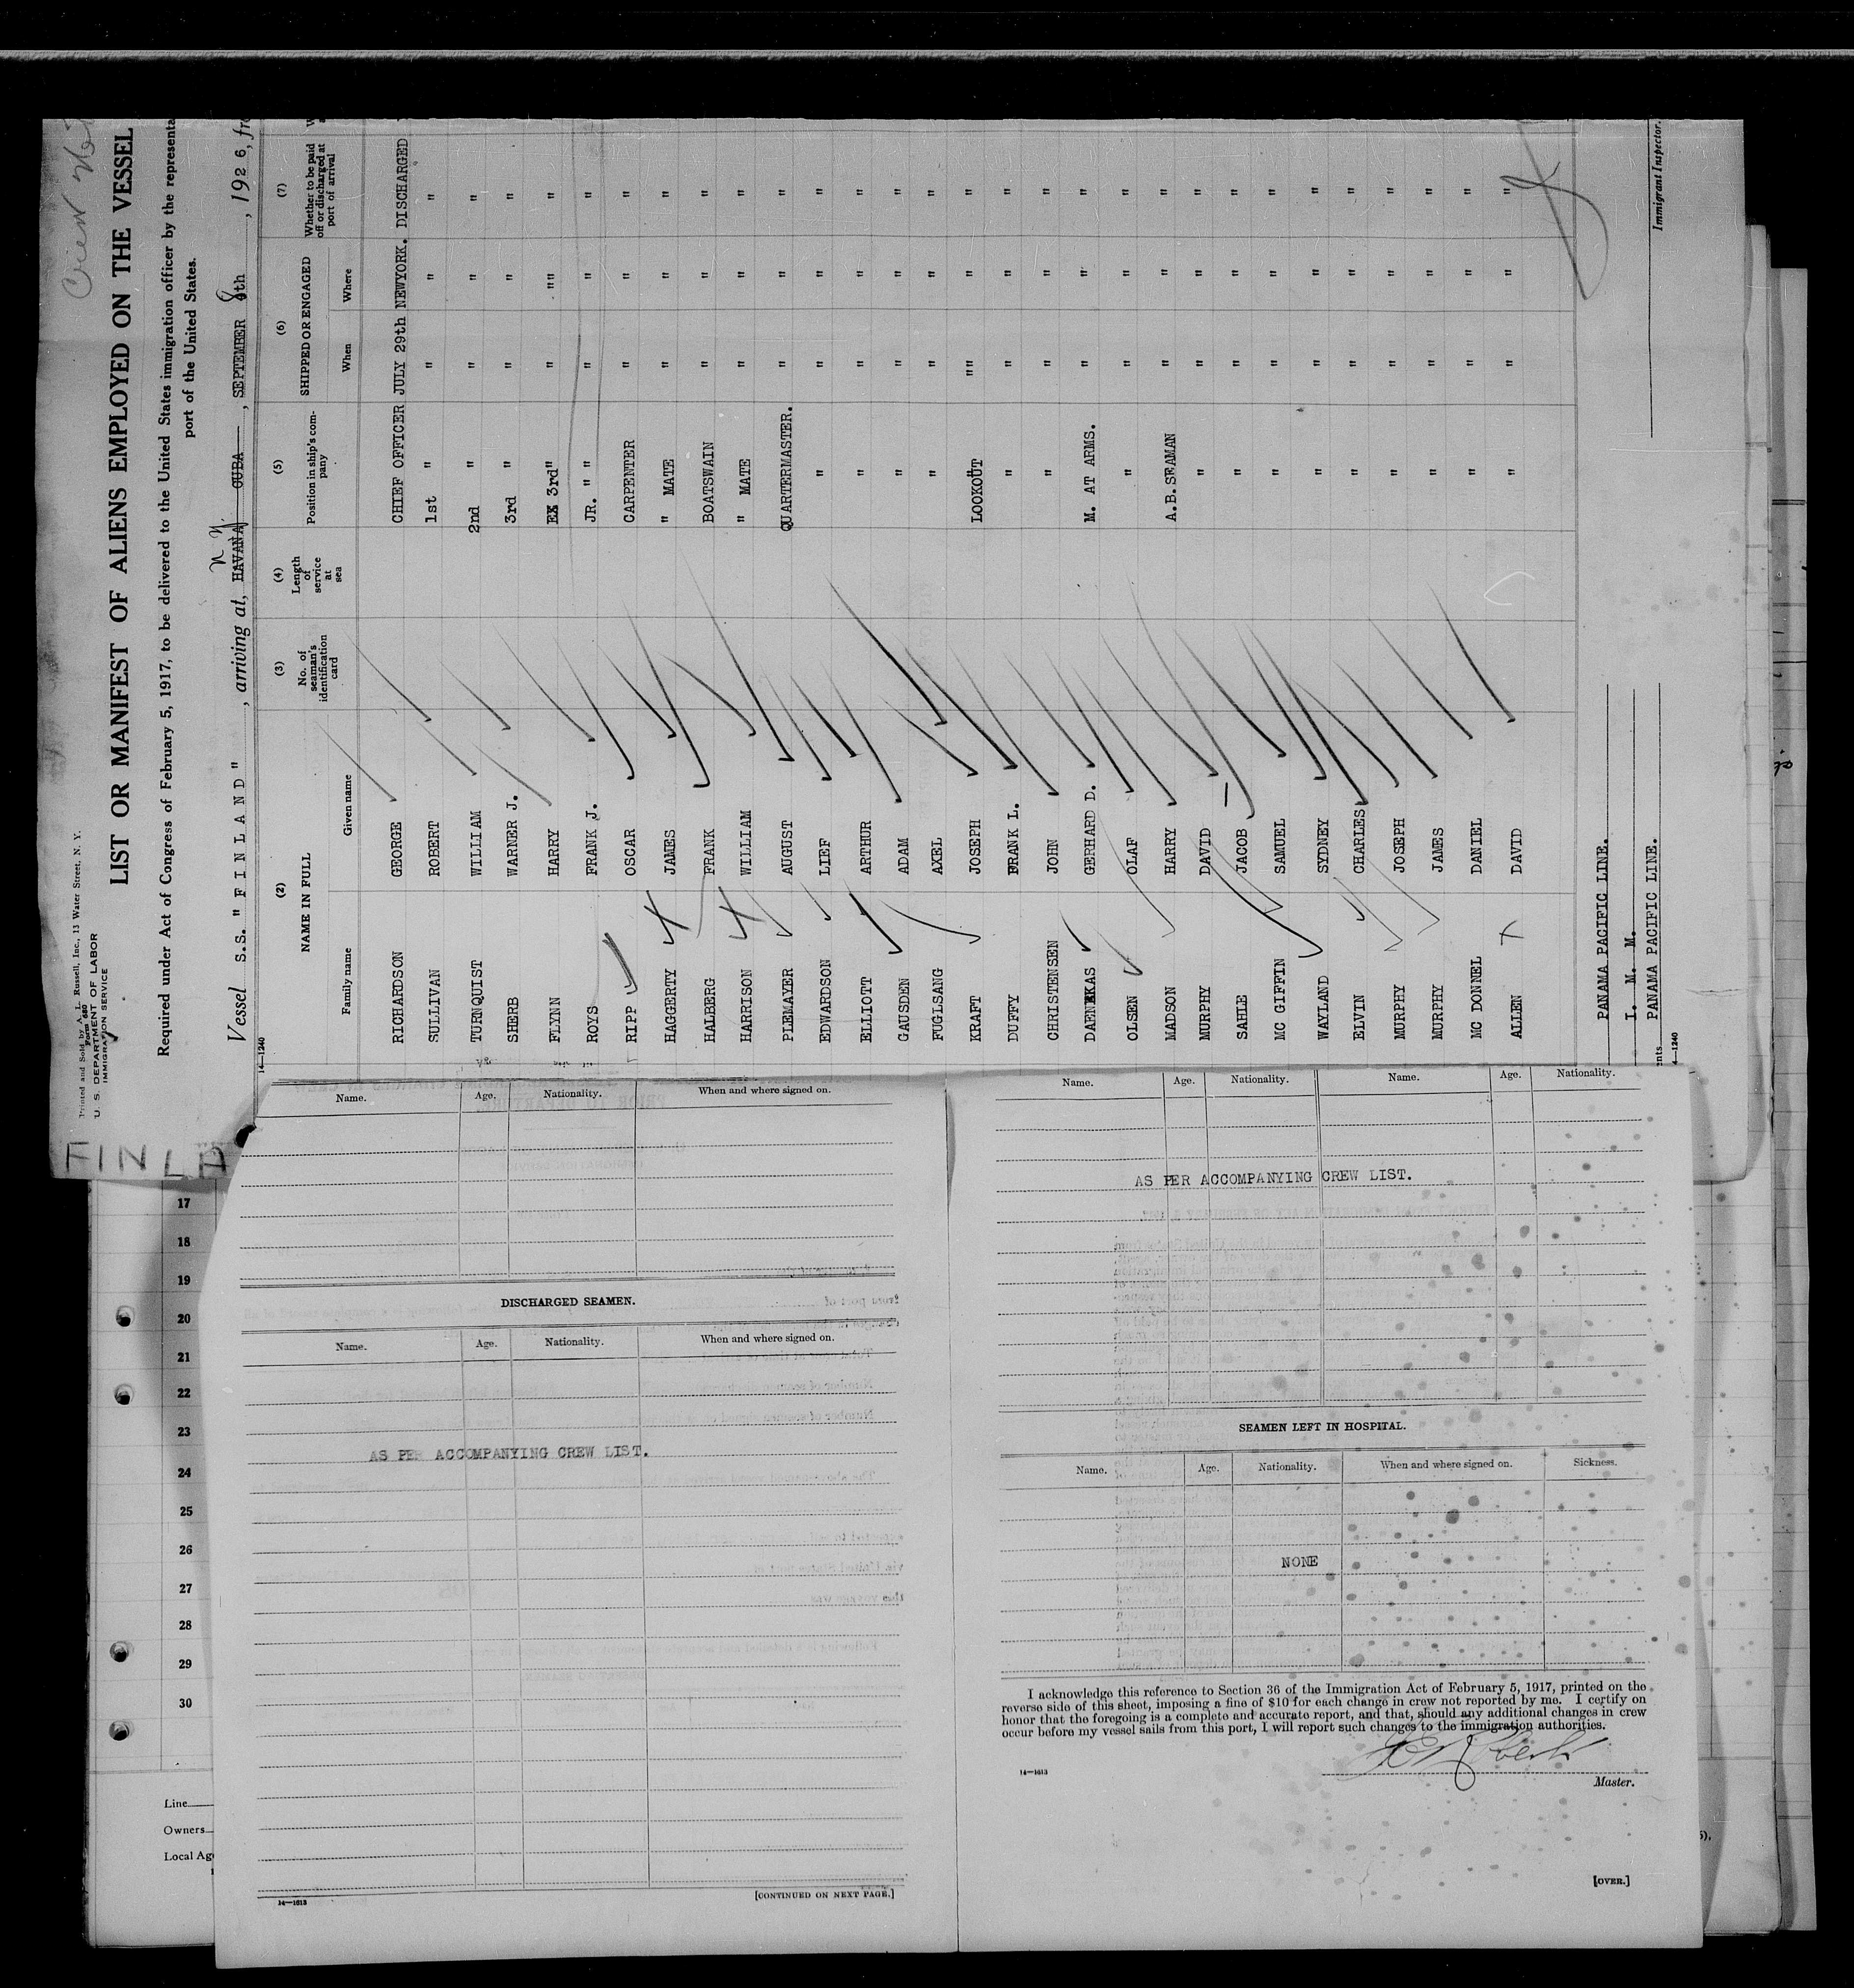 Printed and Sold by A. L. Russell, Inc., 13 Water Street, N. Y.
Form 680
U. S. DEPARTMENT OF LABOR
IMMIGRATION SERVICE
LIST OR MANIFEST OF ALIENS EMPLOYED ON THE VESSEL
Required under Act of Congress of February 5, 1917, to be delivered to the United States immigration officer by the representa
port of the United States.
Vessel S.S. "FINLAND", arriving at, HAVANA CUBA N Y., SEPTEMBER 8th, 1926, fro
14—1240
(2) (3) (4) (5) (6) (7)
NAME IN FULL No. of seaman's identification card Length of service at sea Position in ship's company SHIPPED OR ENGAGED Whether to be paid off or discharged at port of arrival
Family name Given name When Where
RICHARDSON GEORGE CHIEF OFFICER JULY 29th NEWYORK. DISCHARGED
SULLIVAN ROBERT 1st " " " "
TURNQUIST WILLIAM 2nd " " " "
SHERB WARNER J. 3rd " " " "
FLYNN HARRY EX 3rd" " "" "
ROYS FRANK J. JR. " " " " "
RIPP OSCAR CARPENTER " " "
HAGGERTY JAMES " MATE " " "
HALBERG FRANK BOATSWAIN " " "
HARRISON WILLIAM " MATE " " "
PLEMAYER AUGUST QUARTERMASTER. " " "
EDWARDSON LIEF " " " "
ELLIOTT ARTHUR " " " "
GAUSDEN ADAM " " " "
FUGLSANG AXEL " " " "
KRAFT JOSEPH LOOKOUT "" " "
DUFFY FRANK L. " " " "
CHRISTENSEN JOHN " " " "
DAENEKAS GERHARD D. M. AT ARMS. " " "
OLSEN OLAF " " " "
MADSON HARRY A.B.SEAMAN " " "
MURPHY DAVID " " " "
SAHLE JACOB " " " "
MC GIFFIN SAMUEL " " " "
WAYLAND SYDNEY " " " "
ELVIN CHARLES " " " "
MURPHY JOSEPH " " " "
MURPHY JAMES " " " "
MC DONNEL DANIEL " " " "
ALLEN DAVID " " " "
PANAMA PACIFIC LINE.
I. M. M.
PANAMA PACIFIC LINE.
nts
14—1240
Immigrant Inspector.
FINLA
17
18
19
20
21
22
23
24
25
26
27
28
29
30
Line
Owners
Local Ag
Name. Age. Nationality. When and where signed on.
DISCHARGED SEAMEN.
Name. Age. Nationality. When and where signed on.
AS PER ACCOMPANYING CREW LIST.
14—1613
[CONTINUED ON NEXT PAGE.]
Name. Age. Nationality. Name. Age. Nationality.
AS PER ACCOMPANYING CREW LIST.
SEAMEN LEFT IN HOSPITAL.
Name. Age. Nationality. When and where signed on. Sickness.
NONE
I acknowledge this reference to Section 36 of the Immigration Act of February 5, 1917, printed on the
reverse side of this sheet, imposing a fine of $10 for each change in crew not reported by me. I certify on
honor that the foregoing is a complete and accurate report, and that, should any additional changes in crew
occur before my vessel sails from this port, I will report such changes to the immigration authorities.
14—1613
Master.
[OVER.]